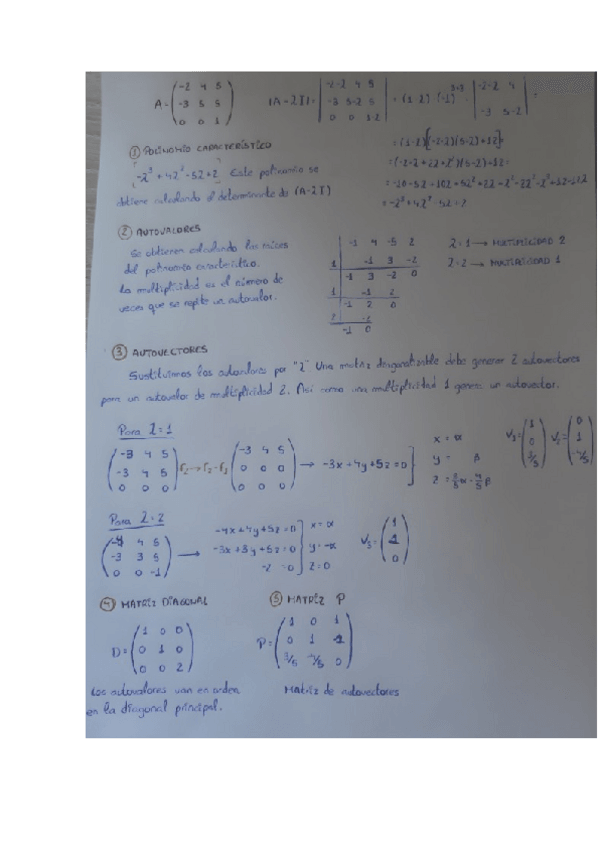 A = ( -2 4 5 / -3 5 5 / 0 0 1 )
|A-λI| = | -2-λ 4 5 / -3 5-λ 5 / 0 0 1-λ | = (1-λ)·(-1)³⁺³ · | -2-λ 4 / -3 5-λ | =
① POLINOMIO CARACTERÍSTICO
= (1-λ)[(-2-λ)(5-λ)+12] =
-λ³+4λ²-5λ+2 Este polinomio se
obtiene calculando el determinante de (A-λI)
= -λ³+4λ²-5λ+2
② AUTOVALORES
Se obtienen calculando las raíces
del polinomio característico.
La multiplicidad es el número de
veces que se repite un autovalor.
-1 4 -5 2
1 -1 3 -2
-1 3 -2 0
1 -1 2
-1 2 0
2
-1 0
λ=1 → MULTIPLICIDAD 2
λ=2 → MULTIPLICIDAD 1
③ AUTOVECTORES
Sustituimos los autovalores por "λ". Una matriz diagonalizable debe generar 2 autovectores
para un autovalor de multiplicidad 2. Así como una multiplicidad 1 genera un autovector.
Para λ=1
( -3 4 5 / -3 4 5 / 0 0 0 ) F₂→F₂-F₁ ( -3 4 5 / 0 0 0 / 0 0 0 ) → -3x+4y+5z=0
x = α
y = β
z = 3/5 α - 4/5 β
V₁ = ( 1 / 0 / 3/5 ) V₂ = ( 0 / 1 / -4/5 )
Para λ=2
( -4 4 5 / -3 3 5 / 0 0 -1 ) →
-4x+4y+5z=0
-3x+3y+5z=0
-z =0
x=α
z=0
④ MATRIZ DIAGONAL
⑤ MATRIZ P
D = ( 1 0 0 / 0 1 0 / 0 0 2 )
Los autovalores van en orden
en la diagonal principal.
Matriz de autovectores